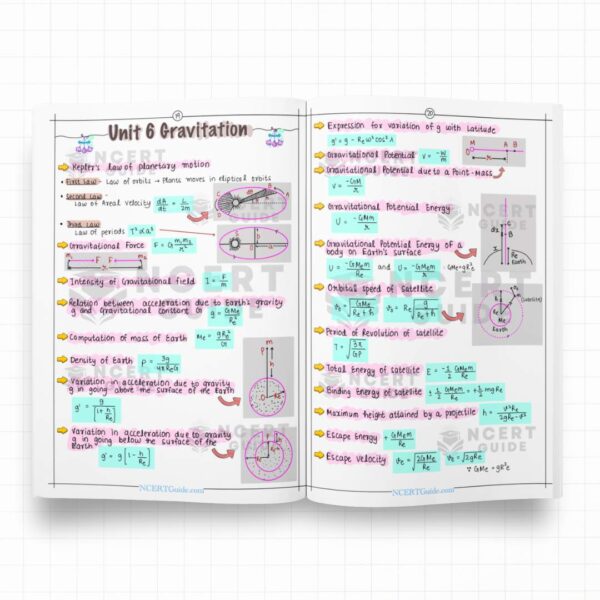 19
Unit 6 Gravitation
Kepler's law of planetary motion
• First Law - Law of orbits → Planets moves in elliptical orbits
• Second Law -
Law of Areal velocity dA/dt = L/2m
• Third Law
Law of periods T² ∝ a³
Gravitational Force F = G m₁m₂/r²
m₁ F F m₂
r
Intensity of Gravitational field I = F/m
Relation between acceleration due to Earth's gravity
g and gravitational constant g = GMe/Re²
Computation of mass of Earth Me = gRe²/G
Density of Earth ρ = 3g/4πReG
Variation in acceleration due to gravity
g in going above the surface of the Earth
Variation in acceleration due to gravity
g in going below the surface of the
Earth
g' = g [1 - h/Re]
NCERTGuide.com
20
Expression for variation of g with Latitude
g' = g - Reω²cos²λ
Gravitational Potential V = -W/m
Gravitational Potential due to a Point-Mass
V = -GM/r
Gravitational Potential Energy
U = -GMm/r
Gravitational Potential Energy of a
body on Earth's surface
U = -GMem/Re and U = -GMem/r
Orbital speed of satellite
Period of Revolution of satellite
T = √3π/Gρ
Total Energy of satellite E = -1/2 GMem/Re
Binding Energy of satellite + 1/2 GMem/Re = +1/2 mgRe
Maximum height attained by a projectile
Escape Energy + GMem/Re
Escape Velocity ve = √2GMe/Re ve = √2gRe
∵ GMe = gR²e
NCERTGuide.com
NCERT
GUIDE